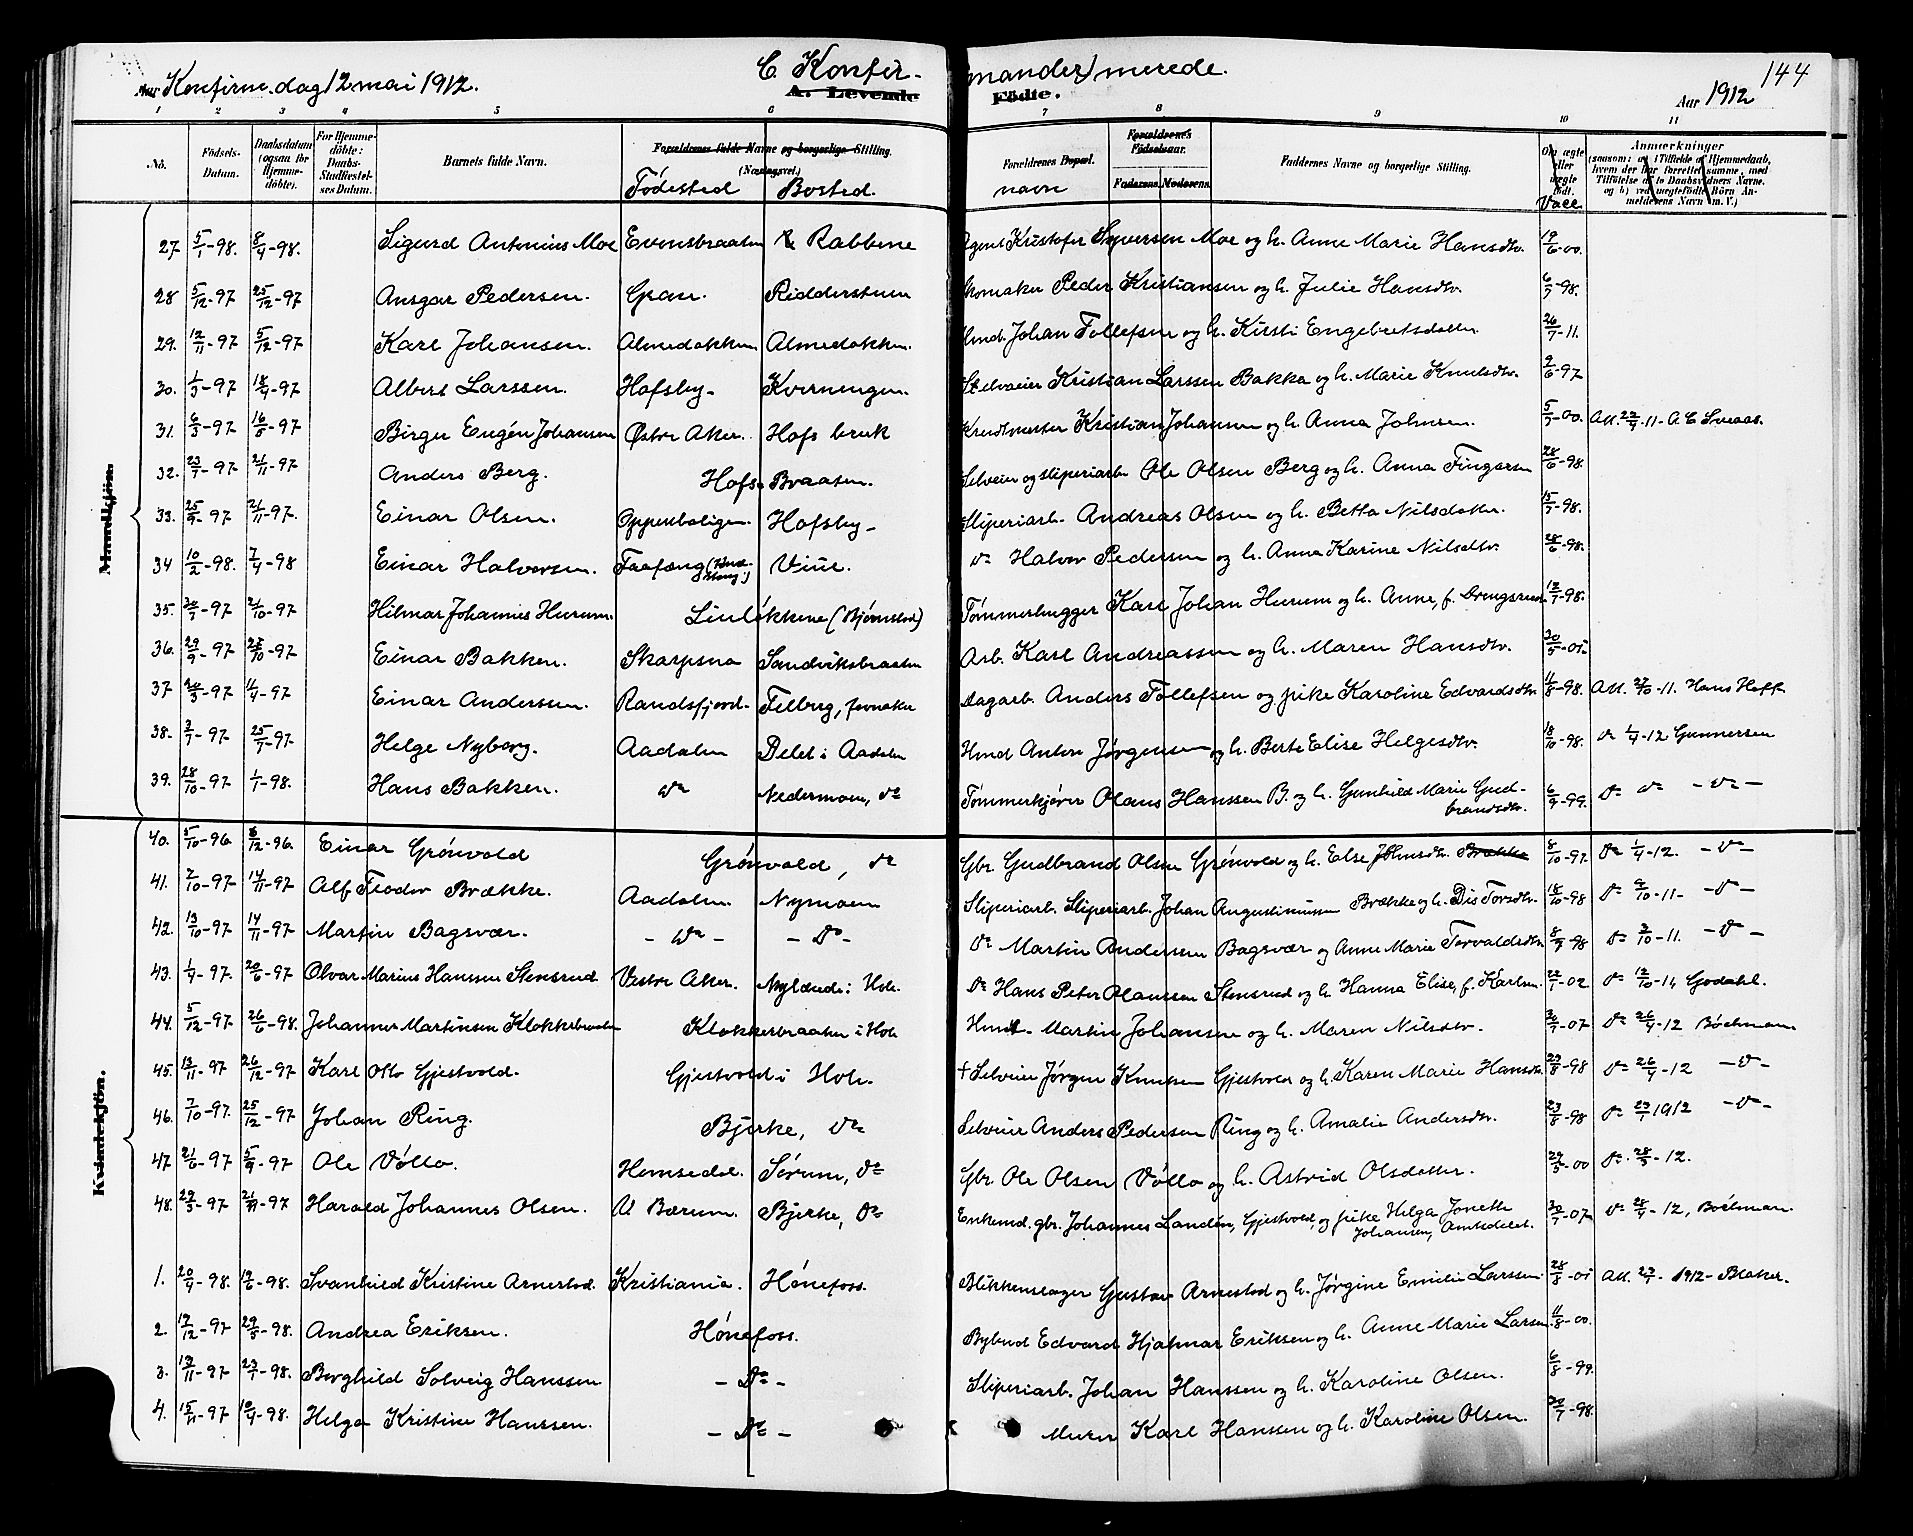 C. Konfirmander) merede.
Aar Konfirm. dag 12 mai 1912.
A. Levende Födte.
Aar 1912
144
1 2 3 4 5 6 7 8 9 10 11
No. Födsels-Datum. Daabsdatum (ogsaa for Hjemmedöbte). For Hjemmedöbte: Daabs-Stadfæstelses Datum. Barnets fulde Navn. Forældrenes fulde Navne og borgerlige Stilling. (Næringsvei.) Fødested Bosted. Forældrenes Bopæl. navn Forældrenes Födselsaar. Faderens Moderens. Faddernes Navne og borgerlige Stilling. Om ægte eller uægte født. Vacc. Anmærkninger (saasom: a) i Tilfælde af Hjemmedaab, hvem der har forrettet samme, med Tilföielse af to Daabsvidners Navne. og b) ved uægtefödte Börn Anmelderens Navn m. V.)
Mandkjön.
27. 5/1-98. 8/4-98. Sigurd Antonius Moe Evensbraaten Rabbene Agent Kristofer Syversen Moe og h. Anne Marie Hansdtr. 19/6-00.
28 5/12-97 25/12-97 Ansgar Pedersen. Gran. Ridderstuen Skomaker Peder Kristiansen og h. Julie Hansdtr. 6/7-98.
29. 12/11-97 5/12-97 Karl Johansen. Almedokken Almedokken. Hmd. Johan Tollefsen og h. Kirsti Engebretsdatter 26/7-11.
30. 1/3-97 18/4-97 Albert Larssen. Hofsby- Kverningen. Selveier Kristian Larssen Bakka og h. Marie Knutsdtr. 9/6-97
31. 6/3-97 16/5-97 Birger Eugén Johansen Østre Aker. Hofs bruk Kristian Johansen og h. Anna Johnsen. 5/7-00. Att. 22/9-11- A C Sveaas.
32. 23/7-97 21/11-97 Anders Berg. Hofs-Braaten. Selveier og sliperiarb. Ole Olsen Berg og h. Anna Fingarsen 28/6-98.
33. 25/9-97 21/11-97. Einar Olsen. Oppenboligen. Hofsby- Sliperiarb. Andreas Olsen og h. Betta Nilsdatter. 15/7-98.
34 10/2-98. 7/4-98 Einar Halvorsen. Faafæng Viue. do Halvor Pedersen og h. Anna Karine Nilsdtr. 28/6-98.
35. 30/7-97 21/10-97 Hilmar Johannes Hurum. Linløkkene (Bjørnstad) Tømmerhugger Karl Johan Hurum og h. Anne, f. Drengsrud. 12/7-98.
36. 29/9-97 25/10-97 Einar Bakken. Skarpsna Sandviksbraaten Arb. Karl Andreassen og h. Maren Hansdtr. 30/5-05
37 20/3-97 11/4-97 Einar Andersen. Randsfjord- Felberg, Dagarb. Anders Tollefsen og pike Karoline Edvardsdtr. 11/8-98. Att. 27/10-11. Hans Hoff.
38. 3/7-97 25/7-97. Helge Nyborg. Aadalen Delet i Aadalen Hmd Anton Jørgensen og h. Berte Elise Helgesdtr. 18/10-98. do 1/4-12 Gunnersen
39. 28/10-97 1/1-98. Hans Bakken. do Nedermoen, do Tømmerkjører Olaus Hanssen B. og h. Gunhild Marie Gudbrandsdtr. 6/9-99. do do - do -
40. 5/10-96. 8/12-96. Einar Grönvold Grönvold, do Gbr. Gudbrand Olsen Grönvold og h. Else Johnsdtr. Brække 8/10-97. do 1/4-12. - do -
41. 2/10-97. 14/11-97 Alf Teodor Brække. Aadalen Nymoen Sliperiarb. Sliperiarb. Johan Augustinussen Brække og h. Dis Torsdtr. 18/10-98 do 9/10-11- - do -
42. 13/10-97 14/11-97 Martin Bagsvær. - do - - do - do Martin Andersen Bagsvær og Anne Marie Torvaldsdtr. 8/9-98 do 3/10-11. - do -
43. 1/4-97. 20/6-97 Olvar Marius Hanssen Stensrud. Vestre Aker. Nylænde i Hole. do Hans Peter Olaussen Stensrud og h. Hanna Elise, f. Karlsen. 22/7-02 do 12/10-11 Godahl.
44. 5/12-97 26/6-98. Johannes Martinsen Klokkerbraaten Klokkerbraaten i Hole Hmd. Martin Johansen og h. Maren Nilsdtr. 30/7-07 do 26/4-12 Böckman
45. 13/11-97 26/12-97 Karl Otto Gjestvold. Gjestvold i Hole. † Selveier Jørgen Knutsen Gjestvold og h. Karen Marie Hansdtr. 23/8-98 do 26/4-12 - do -
46. 7/10-97. 25/12-97 Johan Ring. Bjerke, do Selveier Anders Pedersen Ring og h. Amalie Andersdtr. 23/8-98 do 23/1 1912 - do -
47. 21/6-97 5/9-97 Ole Vøllo. Hemsedal. Sørum, do Gbr. Ole Olsen Vøllo og h. Astrid Olsdatter. 29/5-00 do. 28/3-12.
48. 29/5-97 21/11-97 Harald Johannes Olsen. V Bærum. Bjerke, do Enkemd. gbr. Johannes Landen, Gjestvold, og pike Helga Jonette Johansen, Amtedelet. 30/7-07 do 28/4-12, Böckman.
Kvindekjön.
1. 20/4-98. 19/6-98. Svanhild Kristine Arnestad. Kristiania. Hønefoss. Blikkenslager Gustav Arnestad og h. Jørgine Emilie Larssen. 28/8-05 Att. 23/1- 1912- Blaker.
2. 17/12-97 29/5-98. Andrea Eriksen. Hønefoss. Bybud Edvard Hjalmar Eriksen og h. Anne Marie Larsen. 11/8-00.
3. 13/11-97 23/1-98. Borghild Solveig Hanssen - do - Sliperiarb. Johan Hanssen og h. Karoline Olsen. 6/8-99.
4. 15/11-97 10/4-98. Helga Kristine Hanssen. - do - Murer Karl Hanssen og h. Karoline Olsen. 30/7-98.